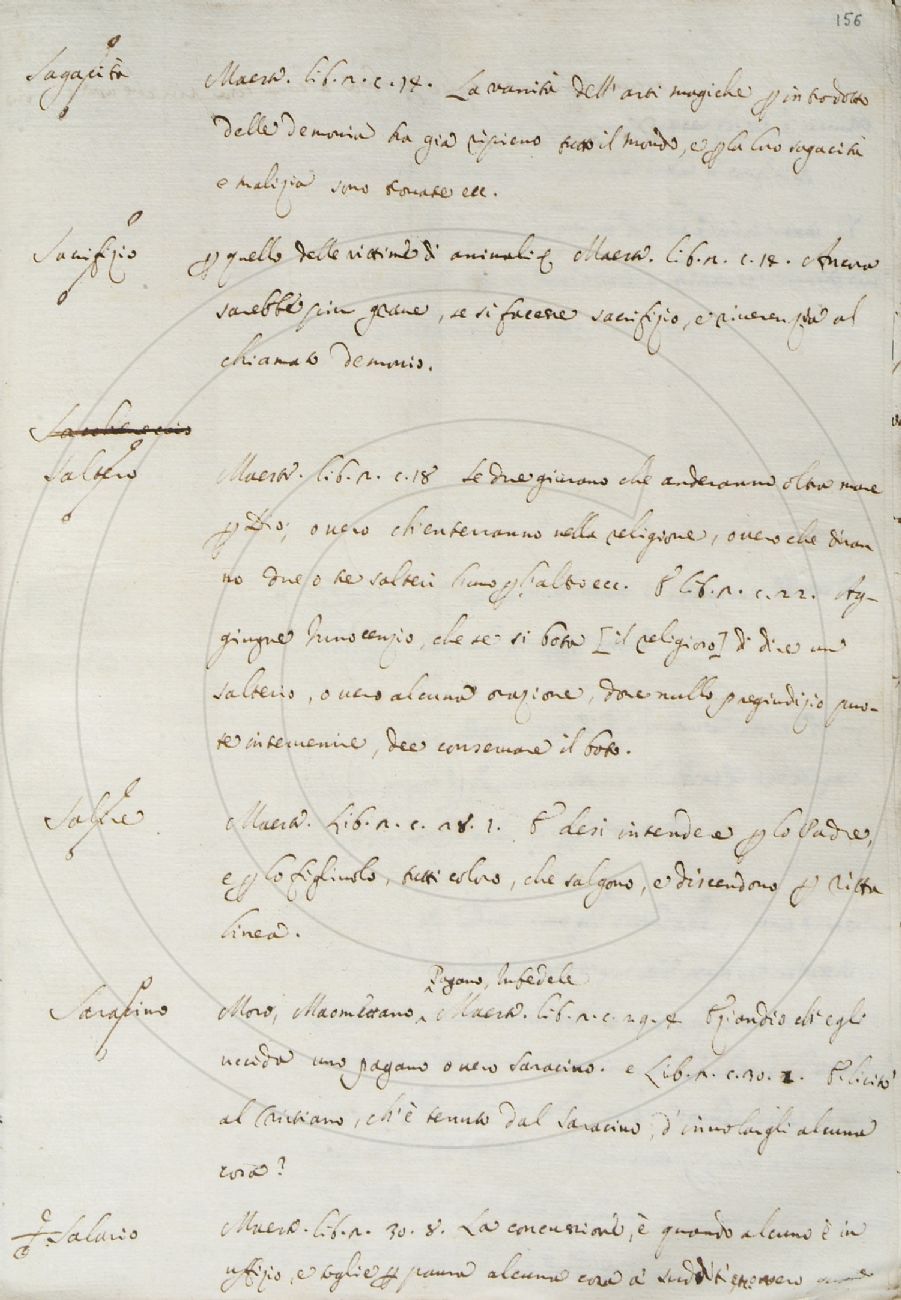 156
Sagacità Maestr. lib. 2. c. 14. La vanità dell'arti magiche p introdotto
delle demonia ha già ripieno tutto il mondo, e p la loro sagacità
e malizia sono trovate ecc.
Sacrifizio p quello delle vittime di animali ec. Maestr. lib. 2. c. 14. Ancora
sarebbe piu grave, se si facesse sacrifizio, e riverenzia al
chiamato demonio.
Saltero Maestr. lib. 2. c. 18 Se due giurano che anderanno oltra mare
p Dio, overo ch'enterranno nella religione, overo che diran
no due o tre salteri l'uno p l'altro ecc. E lib. 2. c. 22. Ag-
giugne Innocenzio, che se si bota [il religioso] di dire un
salterio, overo alcuna orazione, dove nullo pregiudizio puo-
te intervenire, dee conservare il boto.
Salire Maestr. Lib. 2. c. 28. 1. E desi intendere p lo Padre,
e p lo figliuolo, tutti coloro, che salgono, e discendono p ritta
linea.
Pagano, Infedele
Saracino Moro, Maomettano, Maestr. lib. 2. c. 29. 4 Eziandio ch'egli
uccida uno pagano overo Saracino. e Lib. 2. c. 30. E' licito
al Cristiano, ch'è tenuto dal Saracino, d'involargli alcuna
cosa?
Salario Maestr. lib. 2. 30. 8. La concussione, è quando alcuno è in
uffizio, e toglie p paura alcuna cosa a' sudditi, overo